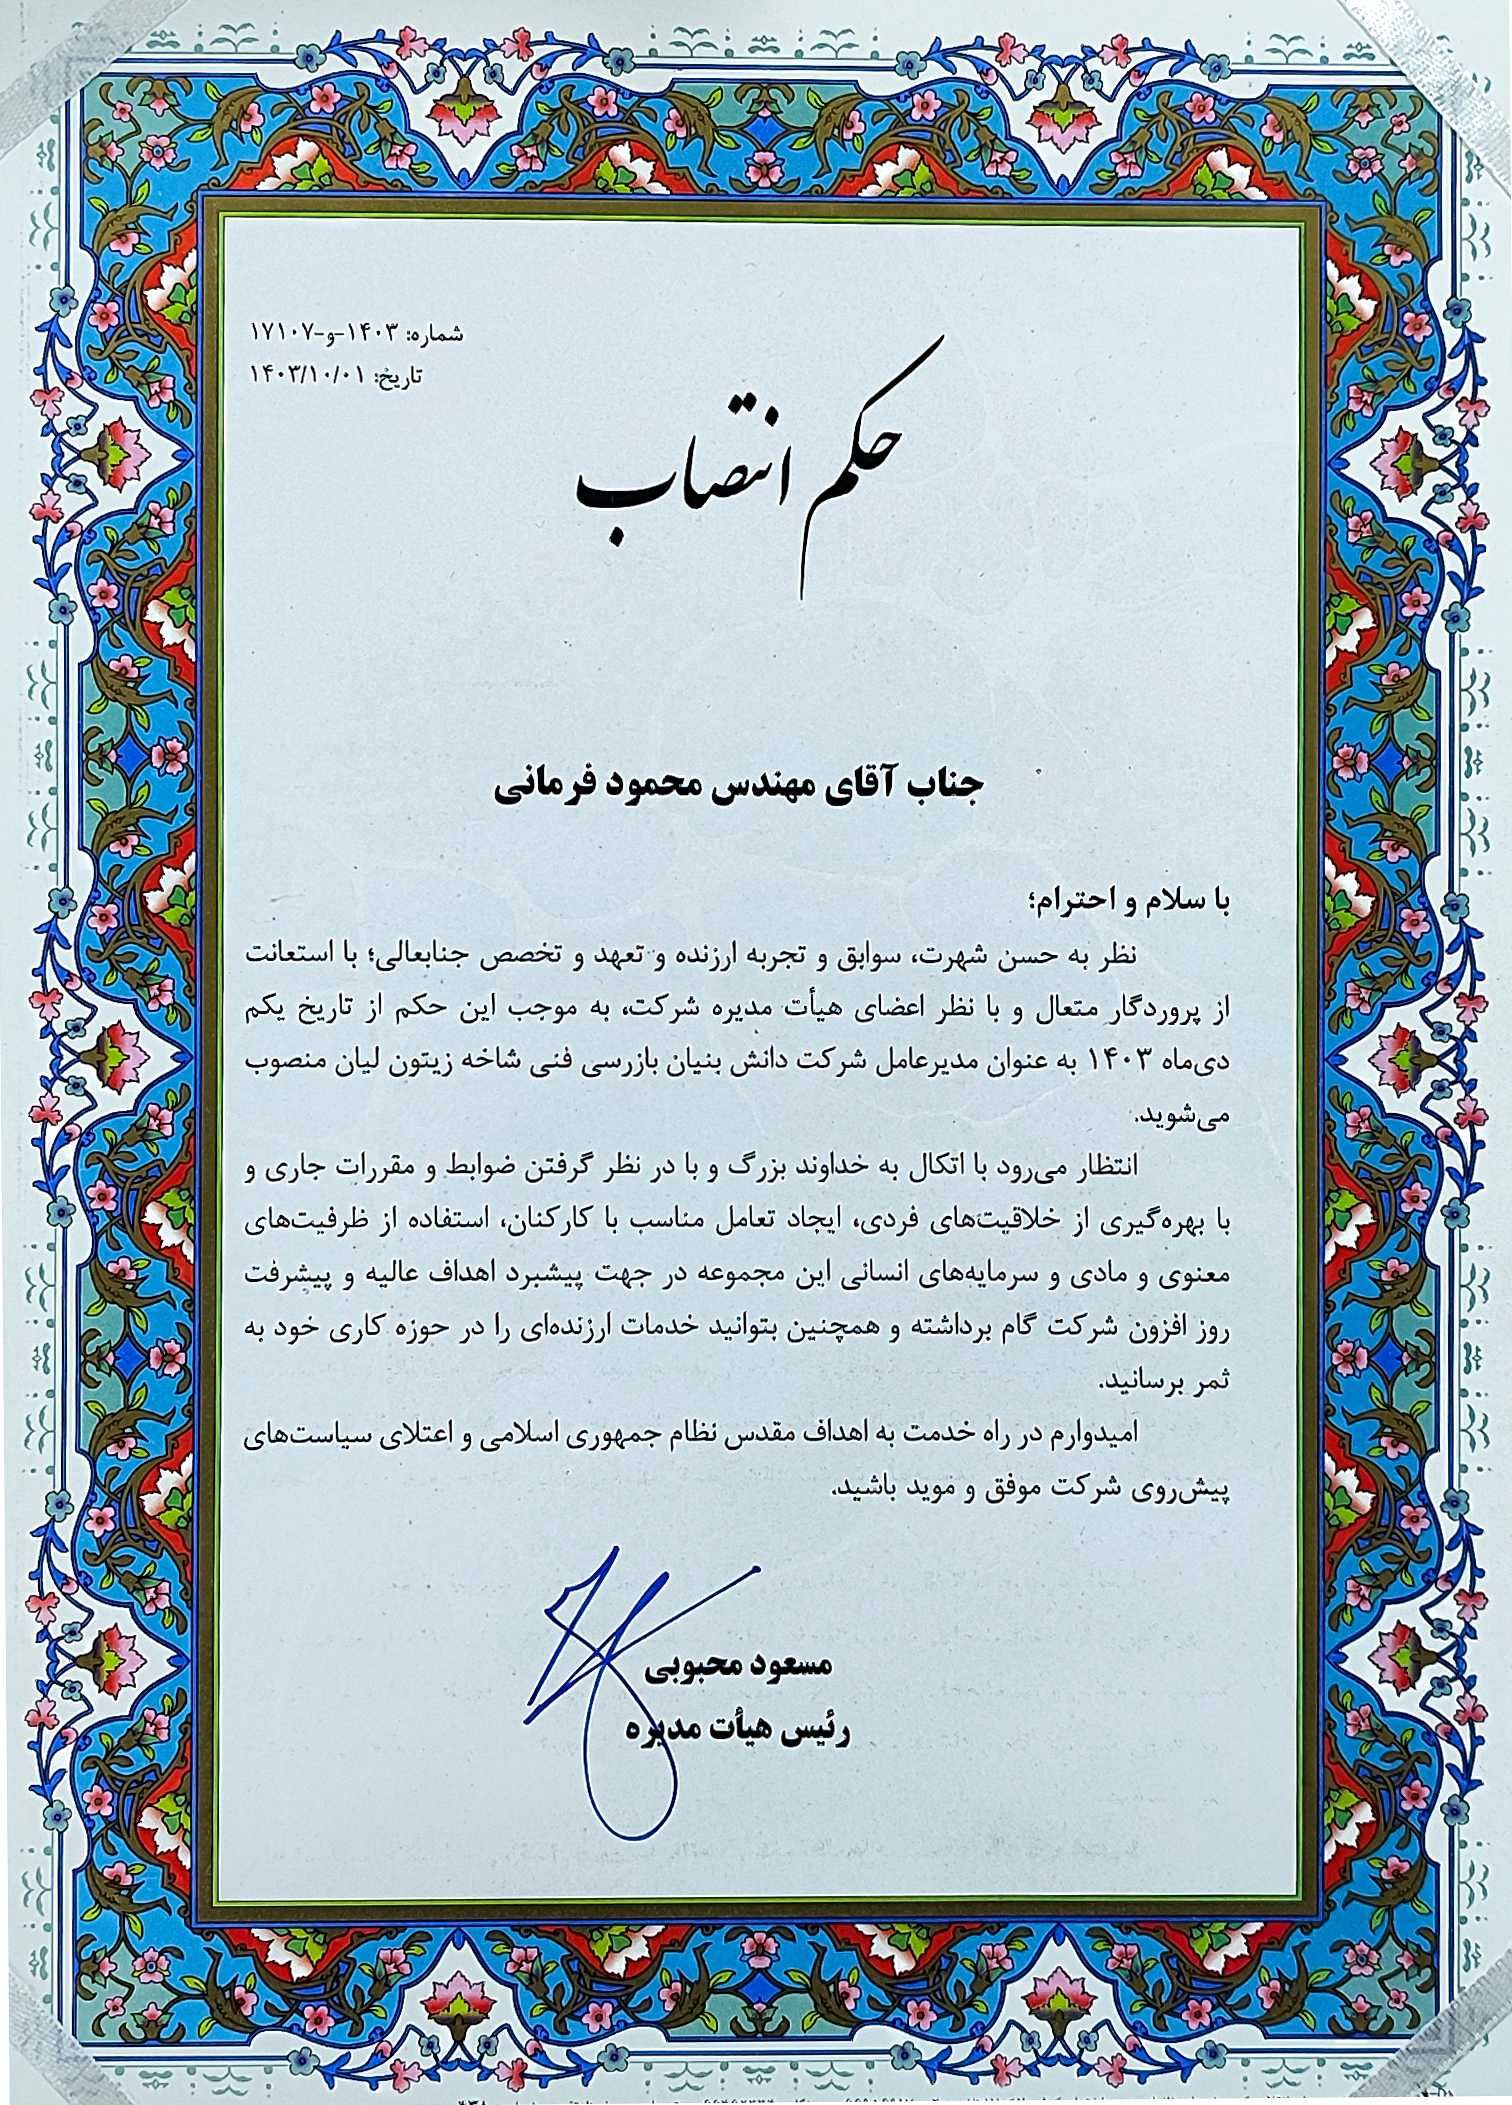 شماره: ۱۴۰۳-و-۱۷۱۰۷
تاریخ: ۱۴۰۳/۱۰/۰۱
حکم انتصاب
جناب آقای مهندس محمود فرمانی
با سلام و احترام؛
نظر به حسن شهرت، سوابق و تجربه ارزنده و تعهد و تخصص جنابعالی؛ با استعانت
از پروردگار متعال و با نظر اعضای هیأت مدیره شرکت، به موجب این حکم از تاریخ یکم
دی‌ماه ۱۴۰۳ به عنوان مدیرعامل شرکت دانش بنیان بازرسی فنی شاخه زیتون لیان منصوب
می‌شوید.
انتظار می‌رود با اتکال به خداوند بزرگ و با در نظر گرفتن ضوابط و مقررات جاری و
با بهره‌گیری از خلاقیت‌های فردی، ایجاد تعامل مناسب با کارکنان، استفاده از ظرفیت‌های
معنوی و مادی و سرمایه‌های انسانی این مجموعه در جهت پیشبرد اهداف عالیه و پیشرفت
روز افزون شرکت گام برداشته و همچنین بتوانید خدمات ارزنده‌ای را در حوزه کاری خود به
ثمر برسانید.
امیدوارم در راه خدمت به اهداف مقدس نظام جمهوری اسلامی و اعتلای سیاست‌های
پیش‌روی شرکت موفق و موید باشید.
مسعود محبوبی
رئیس هیأت مدیره